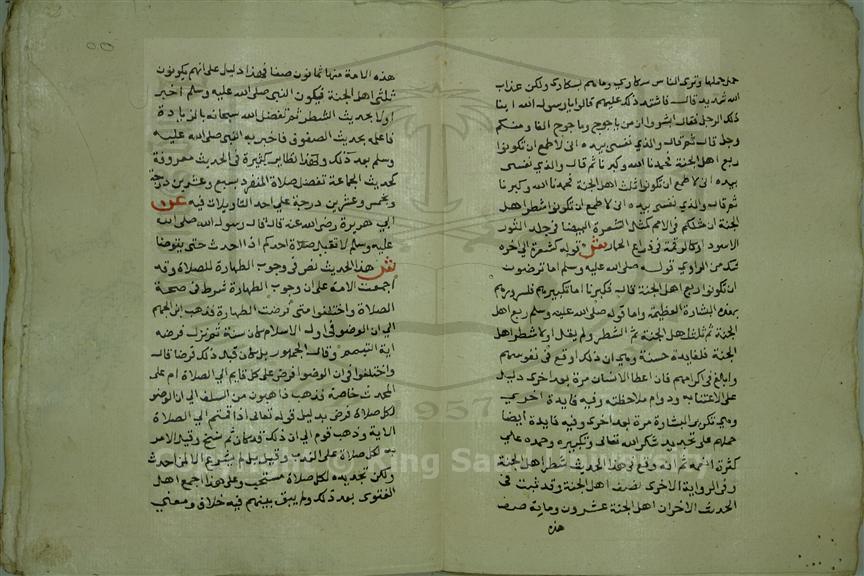 حمل حملها وتري الناس سكاري وماهم بسكاري ولكن عذاب
الله شديد قال فاشتد ذلك عليهم قالوا يا رسول الله اينا
ذلك الرجل فقال ابشروا ان من ياجوج وماجوج الفا ومنكم
رجل قال ثم قال والذي نفسي بيده اني لاطمع ان تكونوا
ربع اهل الجنة فحمدنا الله وكبرنا ثم قال والذي نفسي
بيده اني لاطمع ان تكونوا ثلث اهل الجنة فحمدنا الله وكبرنا
ثم قال والذي نفسي بيده اني لاطمع ان تكونوا شطر اهل
الجنة ان مثلكم في الامم كمثل الشعرة البيضا في جلد الثور
الاسود او كالرقمة في ذراع الحمار ش قوله كشعرة الي اخره
شك من الراوي قوله صلى الله عليه وسلم اما ترضون
ان تكونوا ربع اهل الجنة قال فكبرنا اما تكبيرهم فلسرورهم
بهذه البشارة العظيمة واما قوله صلى الله عليه وسلم ربع اهل
الجنة ثم ثلث اهل الجنة ثم الشطر ولم يقل اولا شطر اهل
الجنة فلفايدة حسنة وهي ان ذلك اوقع في نفوسهم
وابلغ في اكرامهم فان اعطا الانسان مرة بعد اخري دليل
على الاعتنا به ودوام ملاحظته وفيه فايدة اخري
وهي تكرير البشارة مرة بعد اخري وفيه فايدة ايضا
حملهم على تجديد شكر الله تعالى وتكبيره وحمده علي
كثرة النعمة ثم انه وقع في هذا الحديث شطر اهل الجنة
وفي الرواية الاخري نصف اهل الجنة وقد ثبت في
الحديث الاخر ان اهل الجنة عشرون وماية صف
هذه
هذه الامة منها ثمانون صفا فهذا دليل على انهم يكونون
ثلثي اهل الجنة فيكون النبي صلى الله عليه وسلم اخبر
اولا بحديث الشطر ثم تفضل الله سبحانه بالزيادة
فاعلمه بحديث الصفوف فاخبر به النبي صلى الله عليه
وسلم بعد ذلك ولهذا نظاير كثيرة في الحديث معروفة
كحديث الجماعة تفضل صلاة المنفرد بسبع وعشرين درجة
وبخمس وعشرين درجة علي احد التاويلات فيه عن
ابي هريرة رضي الله عنه قال قال رسول الله صلى الله
عليه وسلم لا تقبل صلاة احدكم اذا احدث حتى يتوضا
ش هذا الحديث نص في وجوب الطهارة للصلاة وقد
اجمعت الامة على ان وجوب الطهارة شرط في صحة
الصلاة واختلفوا متى فرضت الطهارة فذهب ابن الجهم
الي ان الوضو في اول الاسلام كان سنة ثم نزل فرضه
اية التيمم وقال الجمهور بل كان قبل ذلك فرضا قال
واختلفوا في ان الوضوا فرض على كل قايم الي الصلاة ام على
المحدث خاصة فذهب ذاهبون من السلف الي ان الوضو
لكل صلاة فرض بدليل قوله تعالى اذا قمتم الي الصلاة
الاية وذهب قوم الي ان ذلك قد كان ثم نسخ وقيل الامر
به لكل صلاة على الندب وقيل بل لم يشرع الا لمن احدث
ولكن تجديده لكل صلاة مستحب وعلى هذا اجمع اهل
الفتوى بعد ذلك ولم يبق بينهم فيه خلاف ومعني
1957